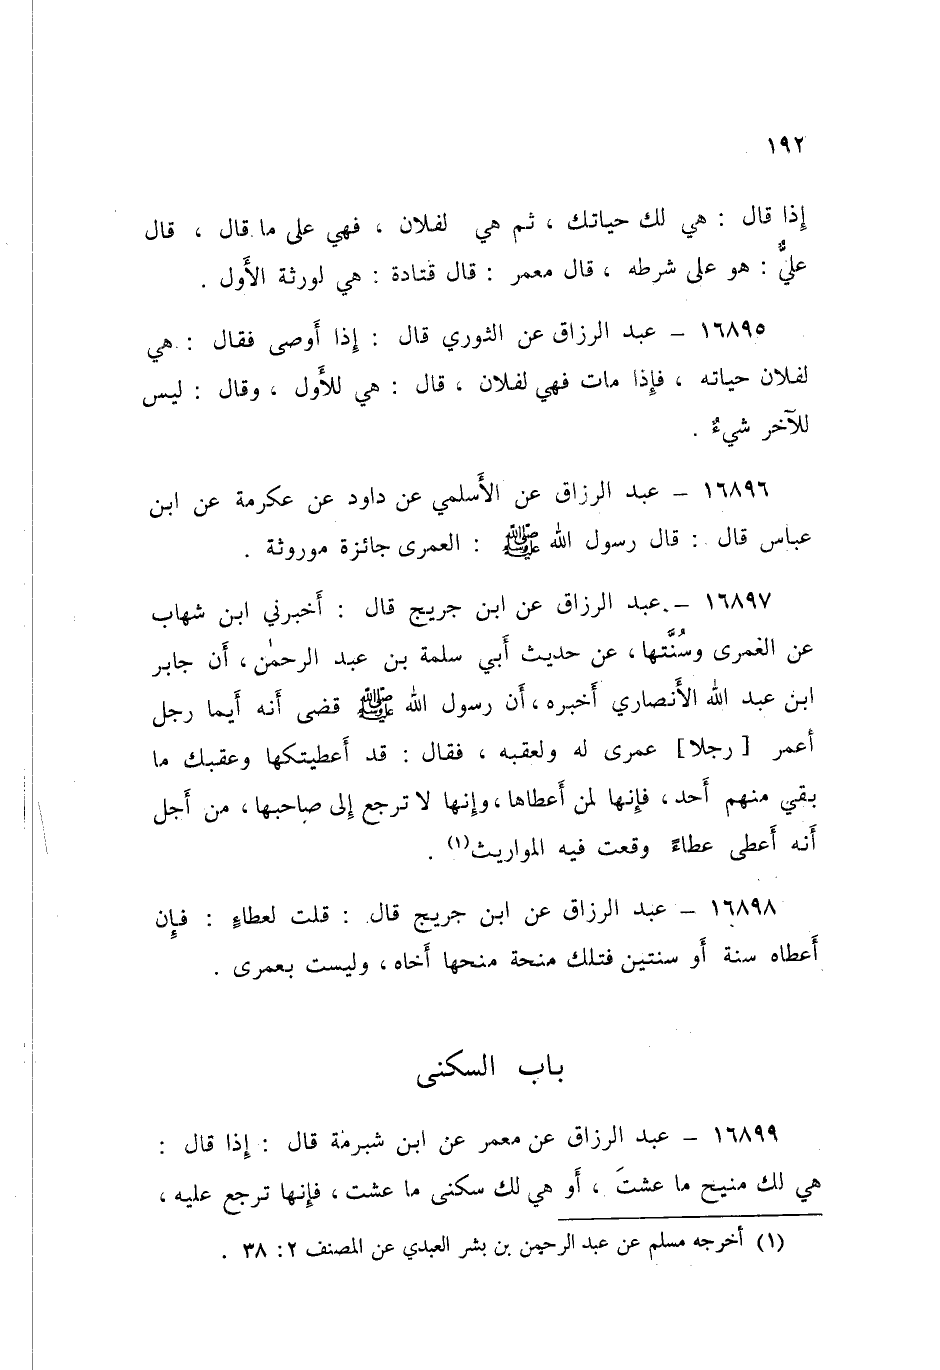 ١٩٢
إذا قال : هي لك حياتك ، ثم هي لفلان ، فهي على ما قال ، قال
عليٌّ : هو على شرطه ، قال معمر : قال قتادة : هي لورثة الأَول .
١٦٨٩٥ – عبد الرزاق عن الثوري قال : إذا أَوصى فقال : هي
لفلان حياته ، فإِذا مات فهي لفلان ، قال : هي للأَول ، وقال : ليس
للآخر شيءٌ .
١٦٨٩٦ – عبد الرزاق عن الأَسلمي عن داود عن عكرمة عن ابن
عباس قال : قال رسول الله ﷺ : العمرى جائزة موروثة .
١٦٨٩٧ – عبد الرزاق عن ابن جريج قال : أَخبرني ابن شهاب
عن العمرى وسُنَّتها ، عن حديث أَبي سلمة بن عبد الرحمٰن ، أَن جابر
ابن عبد الله الأَنصاري أَخبره ، أَن رسول الله ﷺ قضى أَنه أَيما رجل
أَعمر [ رجلا ] عمرى له ولعقبه ، فقال : قد أَعطيتكها وعقبك ما
بقي منهم أَحد ، فإِنها لمن أَعطاها ، وإِنها لا ترجع إِلى صاحبها ، من أَجل
أَنه أَعطى عطاءً وقعت فيه المواريث(١) .
١٦٨٩٨ – عبد الرزاق عن ابن جريج قال : قلت لعطاءٍ : فإِن
أَعطاه سنة أَو سنتين فتلك منحة منحها أَخاه ، وليست بعمرى .
باب السكنى
١٦٨٩٩ – عبد الرزاق عن معمر عن ابن شبرمة قال : إِذا قال :
هي لك منيح ما عشتَ ، أَو هي لك سكنى ما عشت ، فإِنها ترجع عليه ،
(١) أخرجه مسلم عن عبد الرحمن بن بشر العبدي عن المصنف ٢: ٣٨ .